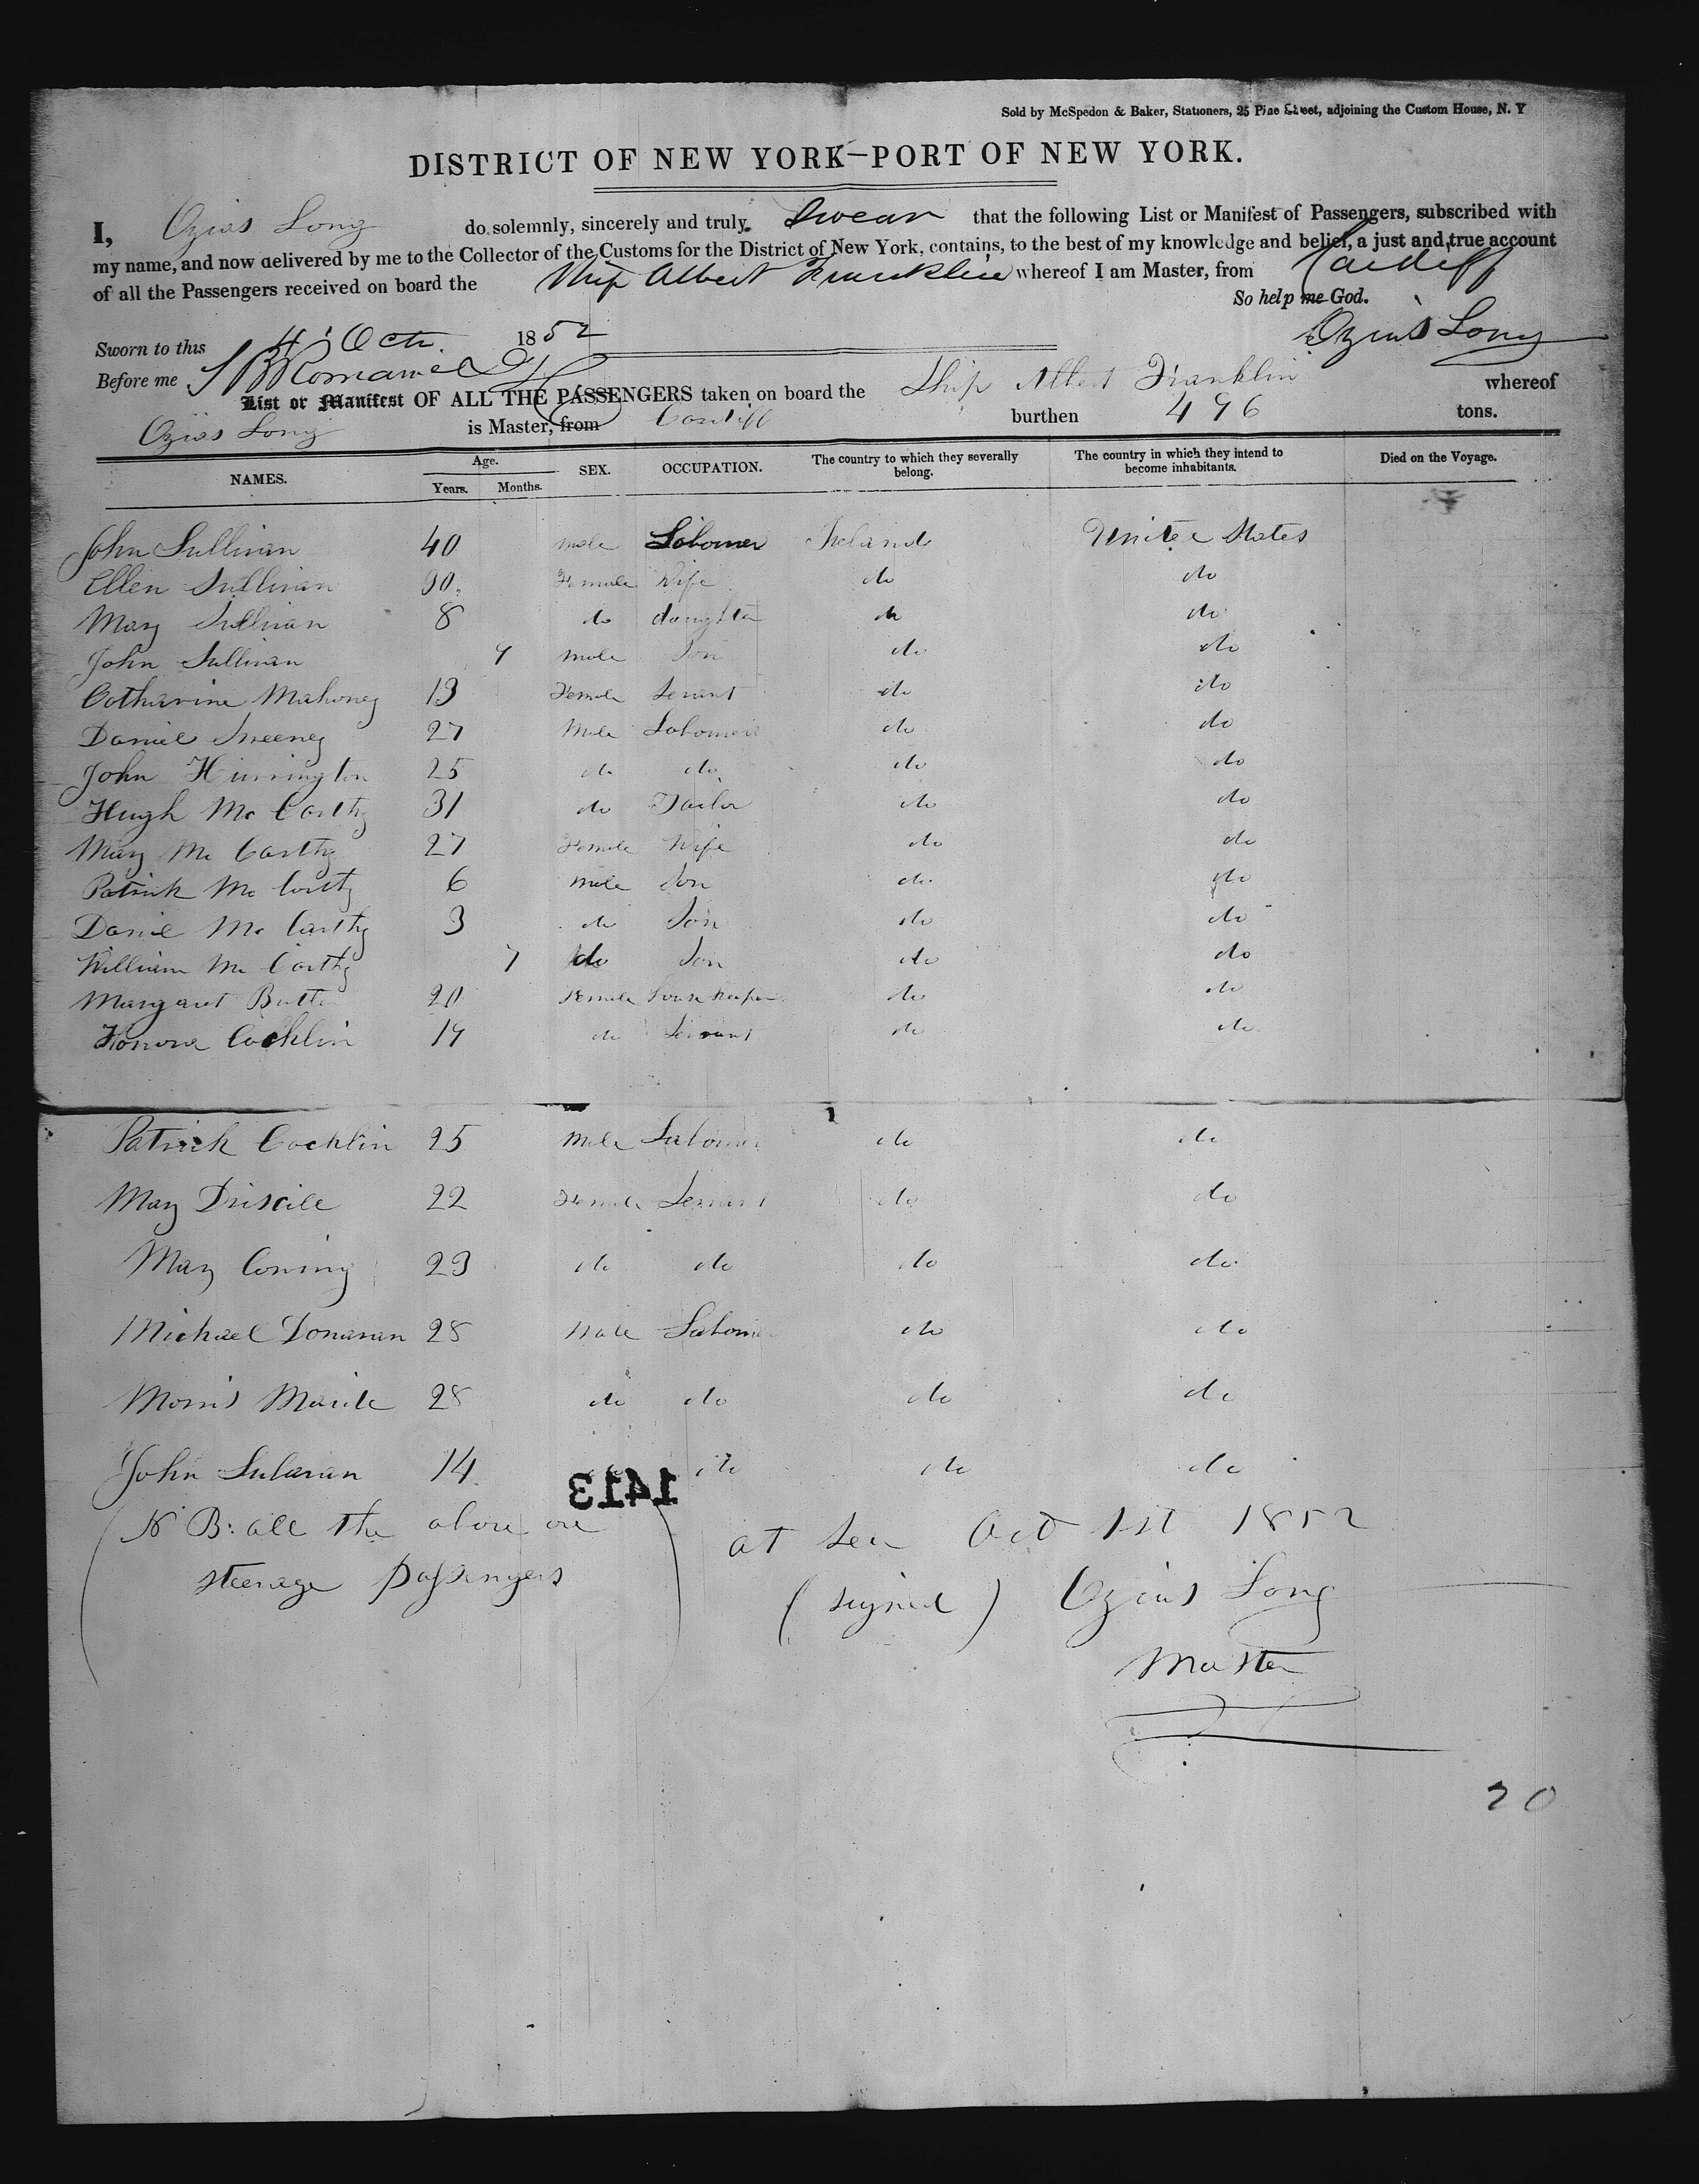 Sold by McSpedon & Baker, Stationers, 25 Pine Street, adjoining the Custom House, N. Y
DISTRICT OF NEW YORK—PORT OF NEW YORK.
I, Ozias Long do solemnly, sincerely and truly swear that the following List or Manifest of Passengers, subscribed with
my name, and now delivered by me to the Collector of the Customs for the District of New York, contains, to the best of my knowledge and belief, a just and true account
of all the Passengers received on board the Ship Albert Franklin whereof I am Master, from Cardiff
So help me God.
Sworn to this 4 Octr. 1852 Ozias Long
Before me
List or Manifest OF ALL THE PASSENGERS taken on board the Ship Albert Franklin whereof
Ozias Long is Master, from Cardiff burthen 496 tons.
NAMES. Age. Years. Months. SEX. OCCUPATION. The country to which they severally belong. The country in which they intend to become inhabitants. Died on the Voyage.
John Sullivan 40 male Labourer Ireland United States
Ellen Sullivan 30 Female Wife do do
Mary Sullivan 8 do daughter do do
John Sullivan 9 male Son do do
Catharine Mahoney 13 Female Servant do do
Daniel Sweeney 27 Male Labourer do do
John Hurrington 25 do do do do
Hugh Mc Carthy 31 do Tailor do do
Mary Mc Carthy 27 Female Wife do do
Patrick Mc Carthy 6 male Son do do
Daniel Mc Carthy 3 do Son do do
William Mc Carthy 7 do Son do do
Margaret 20 Female house keeper do do
Honora Cochlin 19 do Servant do do
Patrick Cochlin 25 male Labourer do do
Mary Driscile 22 Female Servant do do
Mary Coning 23 do do do do
Michael Donavan 28 Male Labourer do do
Morris 28 do do do do
John Sulavan 14 do do do
1413
(N B: all the above are
steerage passengers)
at sea Oct 1st 1852
(signed) Ozias Long
Master
20